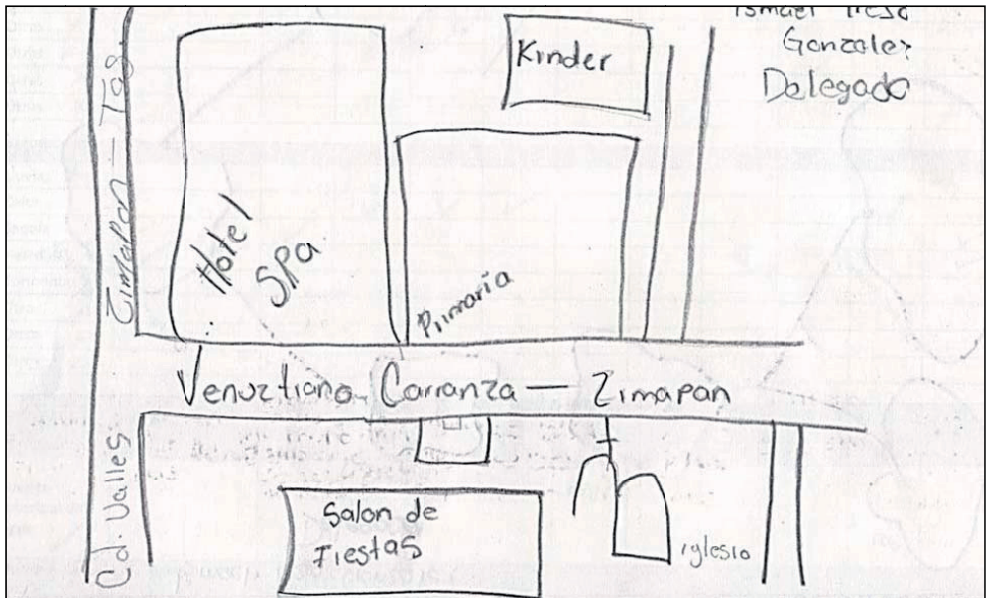 Kinder
Gonzalez
Dalegado
Zimapan
Hotel
Spa
Primaria
Venuztiano Carranza — Zimapan
Cd. Valles
Salon de
Fiestas
iglesia